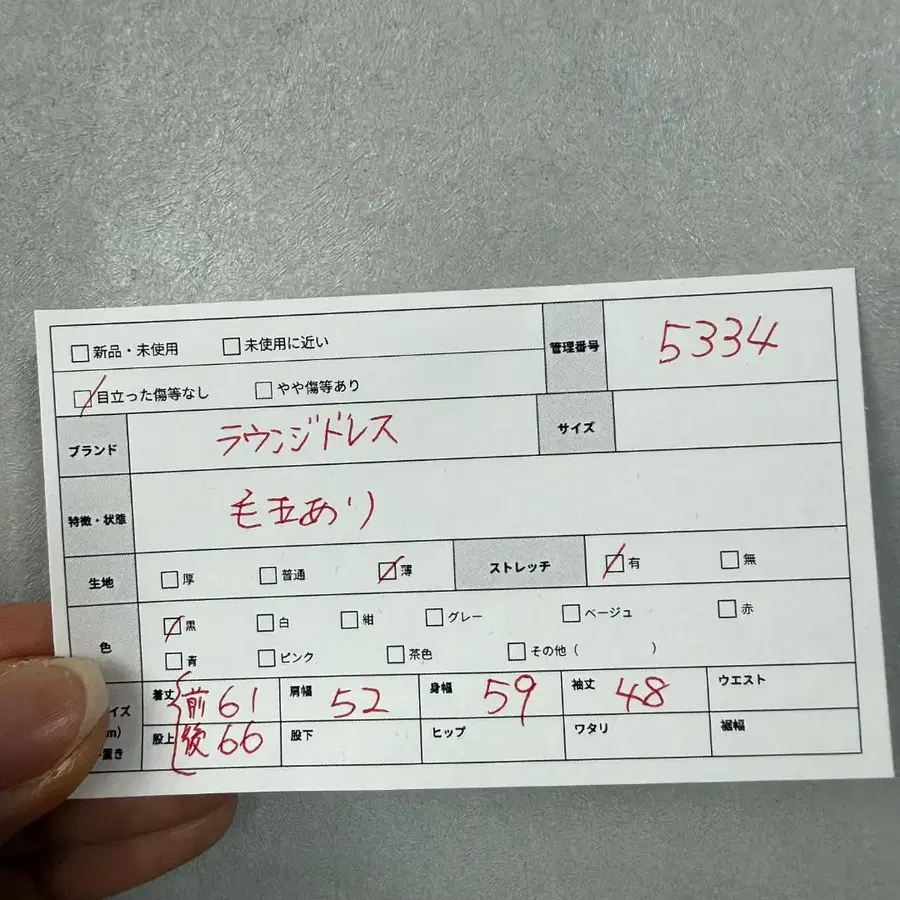 □新品・未使用 □未使用に近い
☑目立った傷等なし □やや傷等あり
管理番号 5334
ブランド ラウンジドレス サイズ
特徴・状態 毛玉あり
生地 □厚 □普通 ☑薄 ストレッチ ☑有 □無
色 ☑黒 □白 □紺 □グレー □ベージュ □赤
□青 □ピンク □茶色 □その他（ ）
イズ 着丈 前61 肩幅 52 身幅 59 袖丈 48 ウエスト
m)
置き 股上 後66 股下 ヒップ ワタリ 裾幅